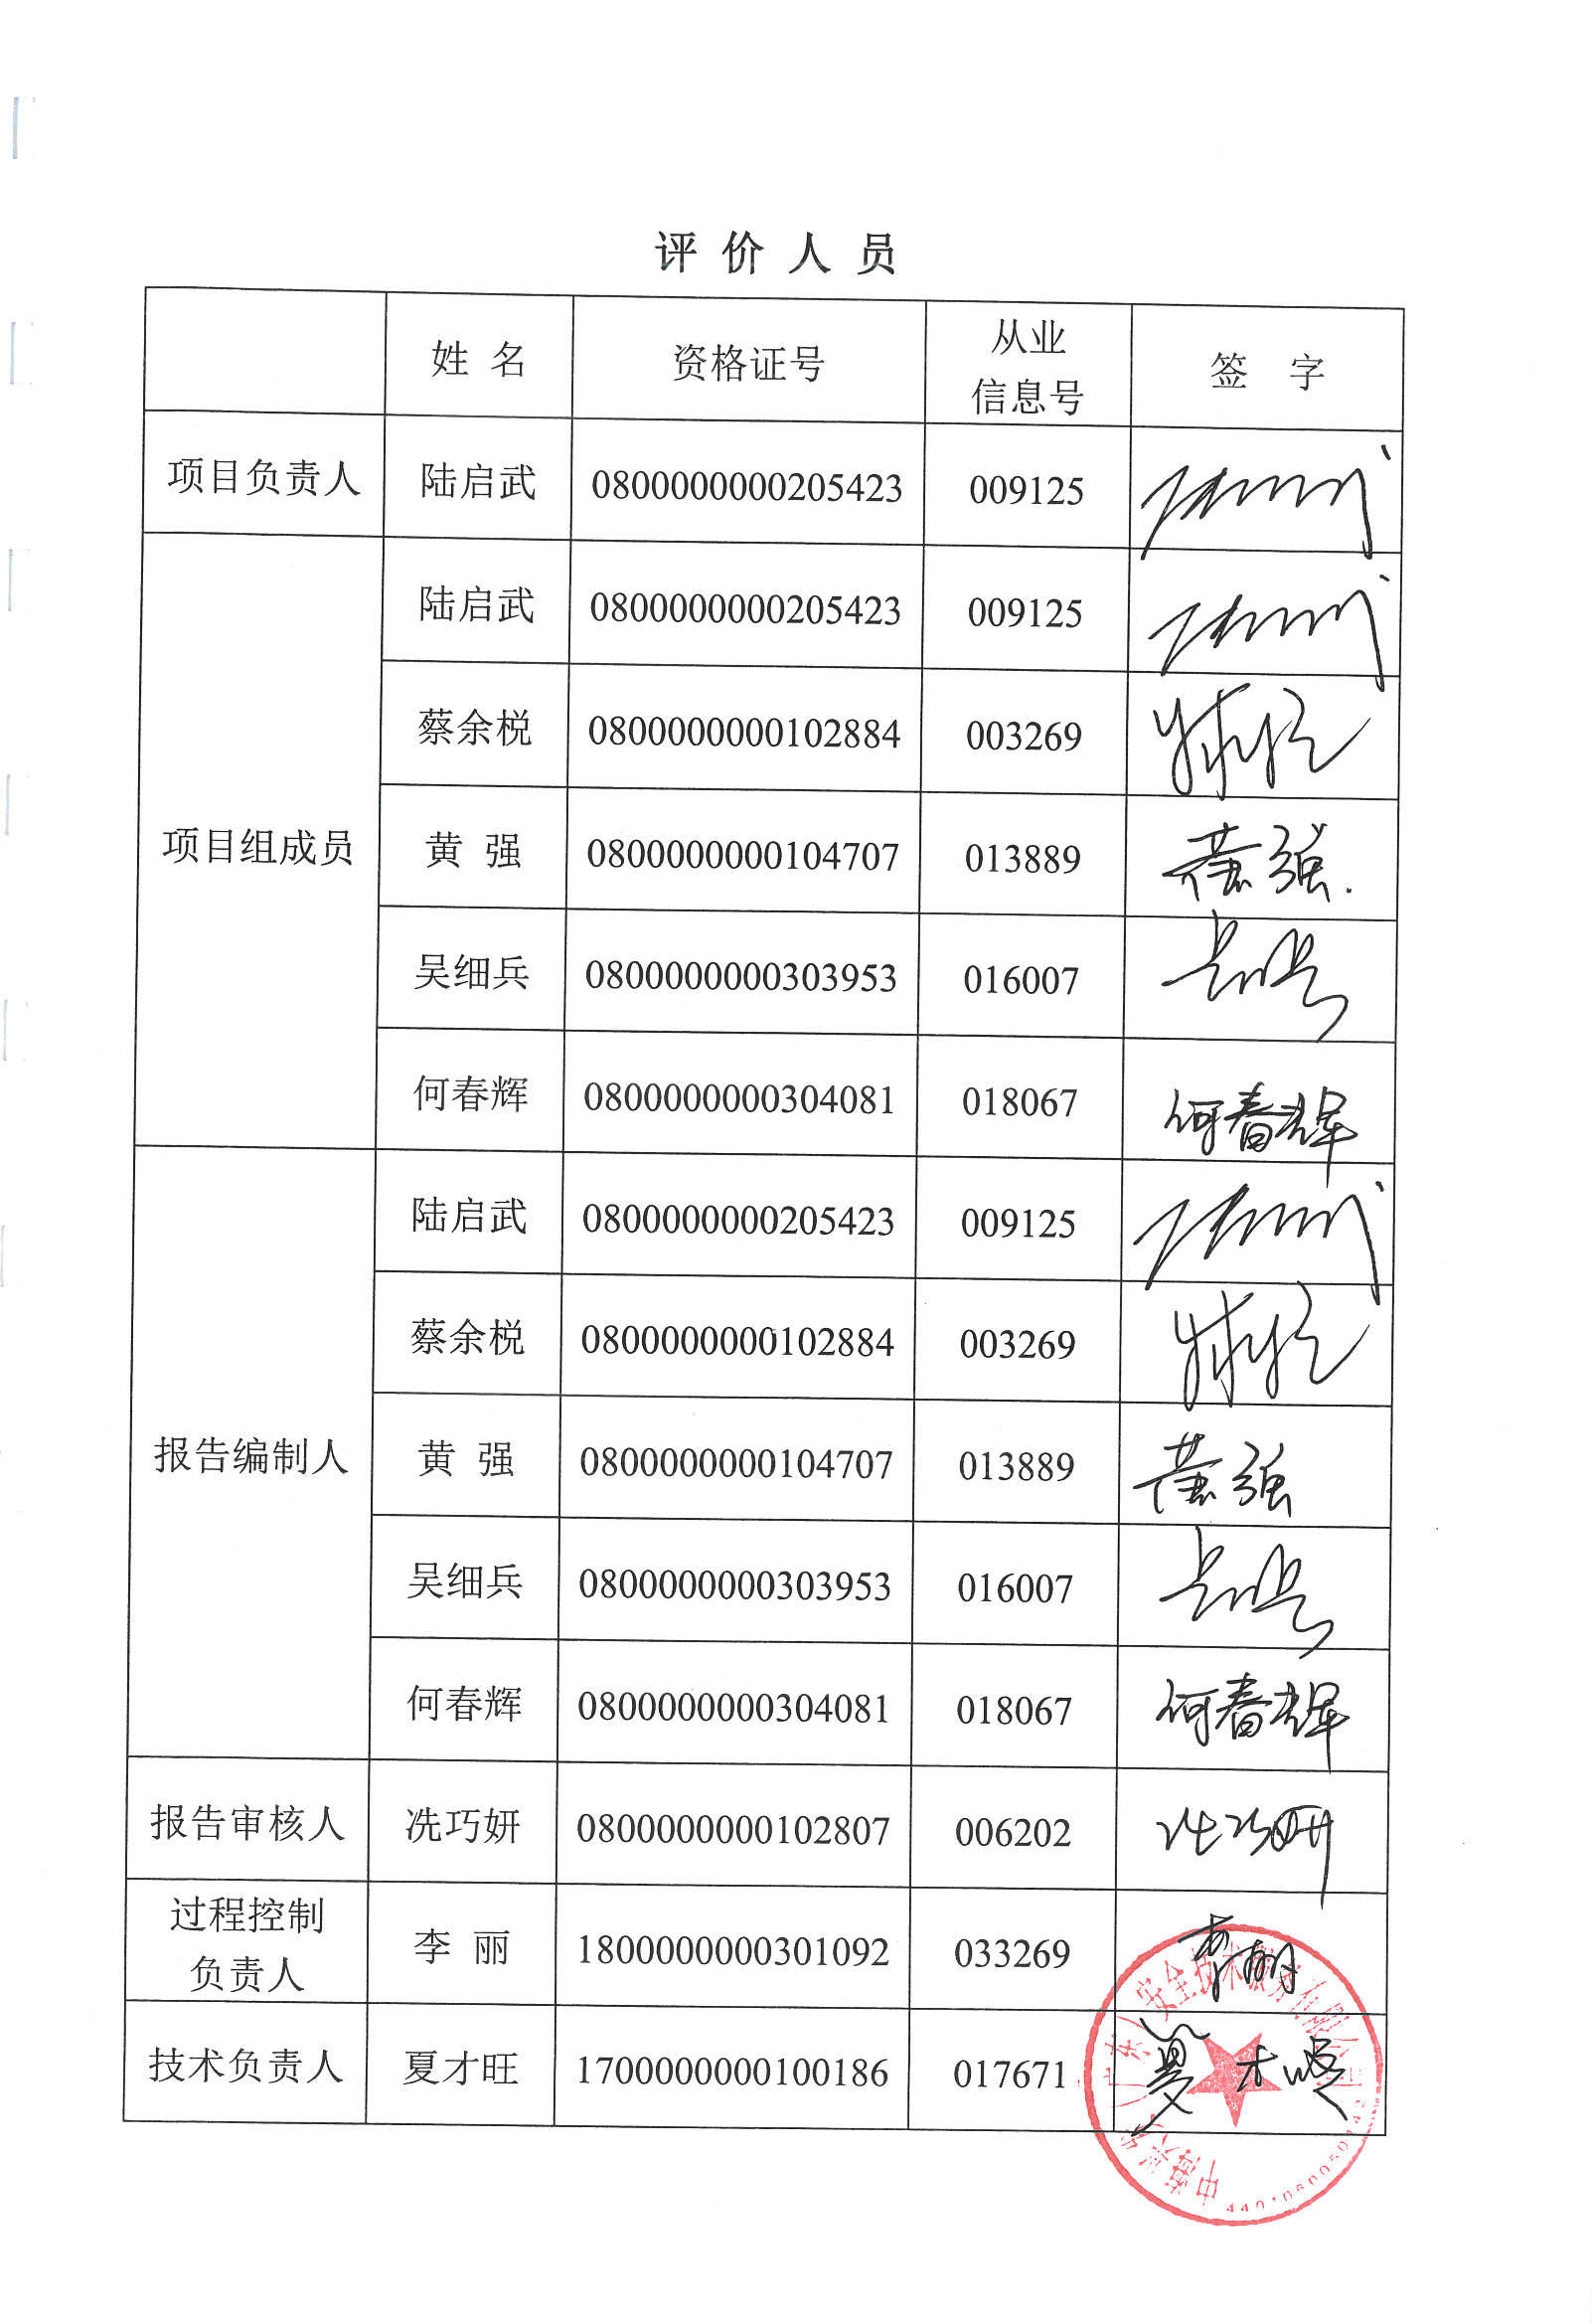 评价人员
姓 名 资格证号 从业信息号 签 字
项目负责人 陆启武 0800000000205423 009125
项目组成员 陆启武 0800000000205423 009125
蔡余棁 0800000000102884 003269
黄 强 0800000000104707 013889 黄强
吴细兵 0800000000303953 016007
何春辉 0800000000304081 018067 何春辉
报告编制人 陆启武 0800000000205423 009125
蔡余棁 0800000000102884 003269
黄 强 0800000000104707 013889 黄强
吴细兵 0800000000303953 016007
何春辉 0800000000304081 018067 何春辉
报告审核人 冼巧妍 0800000000102807 006202 冼巧妍
过程控制负责人 李 丽 1800000000301092 033269 李丽
技术负责人 夏才旺 1700000000100186 017671 夏才旺
(广东)安全技术服务有限公司